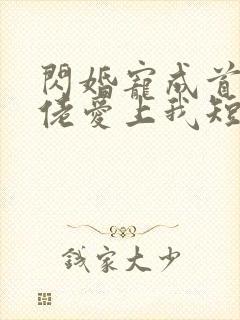 閃婚寵成首
佬愛上我短
錢家大少